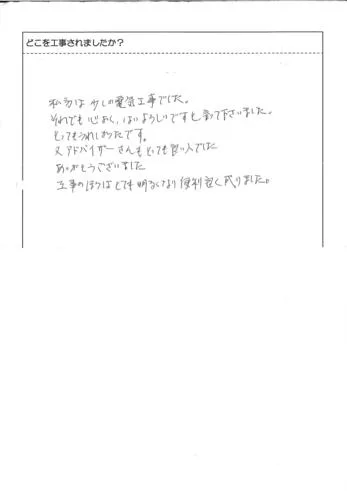 どこを工事されましたか？
私方は少しの電気工事でした。
それでも心よく、はいよろしいですと言って下さいました。
とってもうれしかったです。
又アドバイザーさんもとっても良い人でした
ありがとうございました
工事のほうはとても明るくなり便利良く成りました。